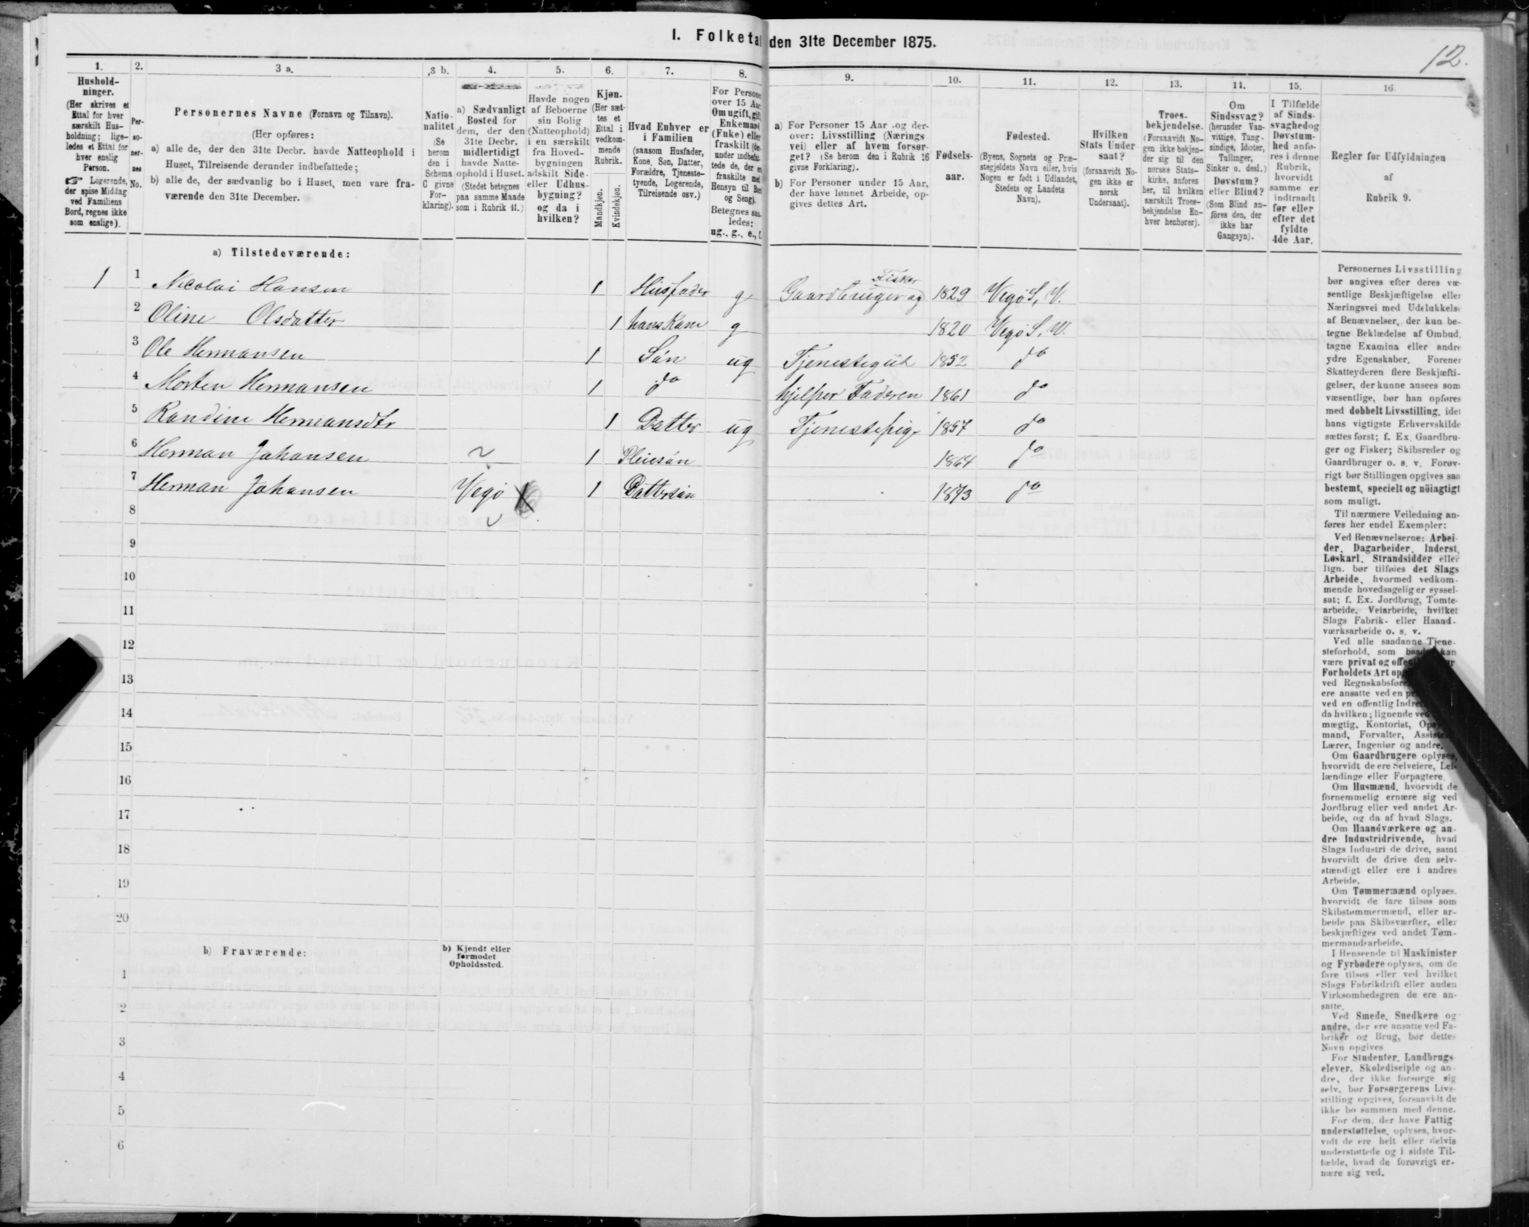 I. Folketal den 31te December 1875.
12.
1.
Hushold-
ninger.
(Her skrives et
Ettal for hver
særskilt Hus-
holdning; lige-
ledes et Ettal for
hver enslig
Person.
Logerende,
der spise Middag
ved Familiens
Bord, regnes ikke
som enslige).
2.
Per-
so-
ner-
nes
No.
3 a.
Personernes Navne (Fornavn og Tilnavn).
(Her opføres:
a) alle de, der den 31te Decbr. havde Natteophold i
Huset, Tilreisende derunder indbefattede;
b) alle de, der sædvanlig bo i Huset, men vare fra-
værende den 31te December.
3 b.
Natio-
nalitet
(Se
herom
den i
Schema
C givne
For-
klaring).
4.
a) Sædvanligt
Bosted for
dem, der den
31te Decbr.
midlertidigt
havde Natte-
ophold i Huset.
(Stedet betegnes
paa samme Maade
som i Rubrik 11.)
5.
Havde nogen
af Beboerne
sin Bolig
(Natteophold)
i en særskilt
fra Hoved-
bygningen
adskilt Side-
eller Udhus-
bygning?
og da i
hvilken?
6.
Kjøn.
(Her sæt-
tes et
Ettal i
vedkom-
mende
Rubrik.
Mandkjøn.
Kvindekjøn.
7.
Hvad Enhver er
i Familien
(saasom Husfader,
Kone, Søn, Datter,
Forældre, Tjeneste-
tyende, Logerende,
Tilreisende osv.)
8.
For Persone
over 15 Aa
Om ugift, gift
Enkemand
(Enke) elle
fraskilt
Betegnes saa
ledes:
ug., g., e., f.
9.
a) For Personer 15 Aar og der-
over: Livsstilling (Nærings
vei) eller af hvem forsør-
get? (Se herom den i Rubrik 16
givne Forklaring).
b) For Personer under 15 Aar,
der have lønnet Arbeide, op-
gives dettes Art.
10.
Fødsels-
aar.
11.
Fødested.
(Byens, Sognets og Præ-
stegjeldets Navn eller, hvis
Nogen er født i Udlandet,
Stedets og Landets
Navn).
12.
Hvilken
Stats Under
saat?
(forsaavidt No-
gen ikke er
norsk
Undersaat).
13.
Troes-
bekjendelse.
(Forsaavidt No-
gen ikke bekjen-
der sig til den
norske Stats-
kirke, anføres
her, til hvilken
særskilt Troes-
bekjendelse En-
hver henhører).
14.
Om
Sindssvag?
(herunder Van-
vittige, Tung-
sindige, Idioter,
Tullinger,
Sinker o. desl.)
Døvstum?
eller Blind?
(Som Blind an-
føres den, der
ikke har
Gangsyn).
15.
I Tilfælde
af Sinds-
svaghedog
Døvstum-
hed anfø-
res i denne
Rubrik,
hvorvidt
samme er
indtraadt
før eller
efter det
fyldte
4de Aar.
16.
Regler for Udfyldningen
af
Rubrik 9.
a) Tilstedeværende:
1 1 Nicolai Hansen 1 Husfader g Gaardbruger og Fisker 1829 Vegø S, V.
2 Oline Olsdatter 1 hans Kone g 1820 Vegø S, V.
3 Ole Hermansen 1 Søn ug Tjenestegut 1852 do
4 Morten Hermansen 1 do hjelper Faderen 1861 do
5 Randine Hermansdtr 1 Datter ug Tjenestepige 1857 do
6 Herman Johansen 1 Pleiesøn 1864 do
7 Herman Johansen Vegø 1 Dattersøn 1873 do
8
9
10
11
12
13
14
15
16
17
18
19
20
b) Fraværende:
b) Kjendt eller
formodet
Opholdssted.
1
2
3
4
5
6
Personernes Livsstilling
bør angives efter deres væ-
sentlige Beskjæftigelse eller
Næringsvei med Udelukkelse
af Benævnelser, der kun be-
tegne Beklædelse af Ombud,
tagne Examina eller andre
ydre Egenskaber. Forener
Skatteyderen flere Beskjæfti-
gelser, der kunne ansees som
væsentlige, bør han opføres
med dobbelt Livsstilling, idet
hans vigtigste Erhvervskilde
sættes først; f. Ex. Gaardbru-
ger og Fisker; Skibsreder og
Gaardbruger o. s. v. Forøv-
rigt bør Stillingen opgives saa
bestemt, specielt og nöiagtigt
som muligt.
Til nærmere Veiledning an-
føres her endel Exempler:
Ved Benævnelserne: Arbei-
der, Dagarbeider, Inderst,
Løskarl, Strandsidder eller
lign. bør tilføies det Slags
Arbeide, hvormed vedkom-
mende hovedsagelig er syssel-
sat; f. Ex. Jordbrug, Tomte-
arbeide, Veiarbeide, hvilket
Slags Fabrik- eller Haand-
værksarbeide o. s. v.
Ved alle saadanne Tjene-
steforhold, som kan
være privat og
Forholdets Art
ved
ere ansatte ved en
ved en offentlig
da hvilken; lignende
mægtig, Kontorist,
mand, Forvalter,
Lærer, Ingeniør og andre.
Om Gaardbrugere oplyses,
hvorvidt de ere Selveiere, Lei-
lændinge eller Forpagtere.
Om Husmænd, hvorvidt de
fornemmelig ernære sig ved
Jordbrug eller ved andet Ar-
beide, og da af hvad Slags.
Om Haandværkere og an-
dre Industridrivende, hvad
Slags Industri de drive, samt
hvorvidt de drive den selv-
stændigt eller ere i andres
Arbeide.
Om Tømmermænd oplyses,
hvorvidt de fare tilsøs som
Skibstømmermænd, eller ar-
beide paa Skibsværfter, eller
beskjæftiges ved andet Tøm-
mermandsarbeide.
I Henseende til Maskinister
og Fyrbødere oplyses, om de
fare tilsøs eller ved hvilket
Slags Fabrikdrift eller anden
Virksomhedsgren de ere an-
satte.
Ved Smede, Snedkere og
andre, der ere ansatte ved Fa-
briker og Brug, bør dettes
Navn opgives
For Studenter, Landbrugs-
elever, Skoledisciple og an-
dre, der ikke forsørge sig
selv, bør Forsørgerens Livs-
stilling opgives, forsaavidt de
ikke bo sammen med denne.
For dem, der have Fattig
understøttelse, oplyses, hvor-
vidt de ere helt eller delvis
understøttede og i sidste Til-
fælde, hvad de forøvrigt er-
nære sig ved.